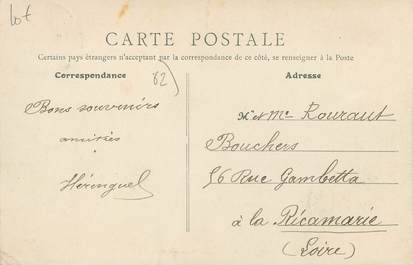 lot
CARTE POSTALE
Certains pays étrangers n'acceptant pas la correspondance de ce côté, se renseigner à la Poste
Correspondance
82
Adresse
Bons souvenirs
amitiés
Hérenguel
M et Me Rouraut
Bouchers
56 Rue Gambetta
à la Ricamarie
(Loire)